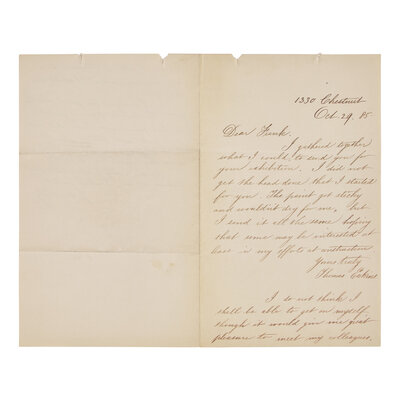 1330 Chestnut
Oct. 29. 85.
Dear Frank.
I gathered together
what I could to send you for
your exhibition. I did not
get the head done that I started
for you. The paint got sticky
and wouldn't dry for me, but
I send it all the same hoping
that some may be interested at
least in my efforts at instruction
Yours truly
Thomas Eakins
I do not think I
shall be able to get on myself
though it would give me great
pleasure to meet my colleagues.